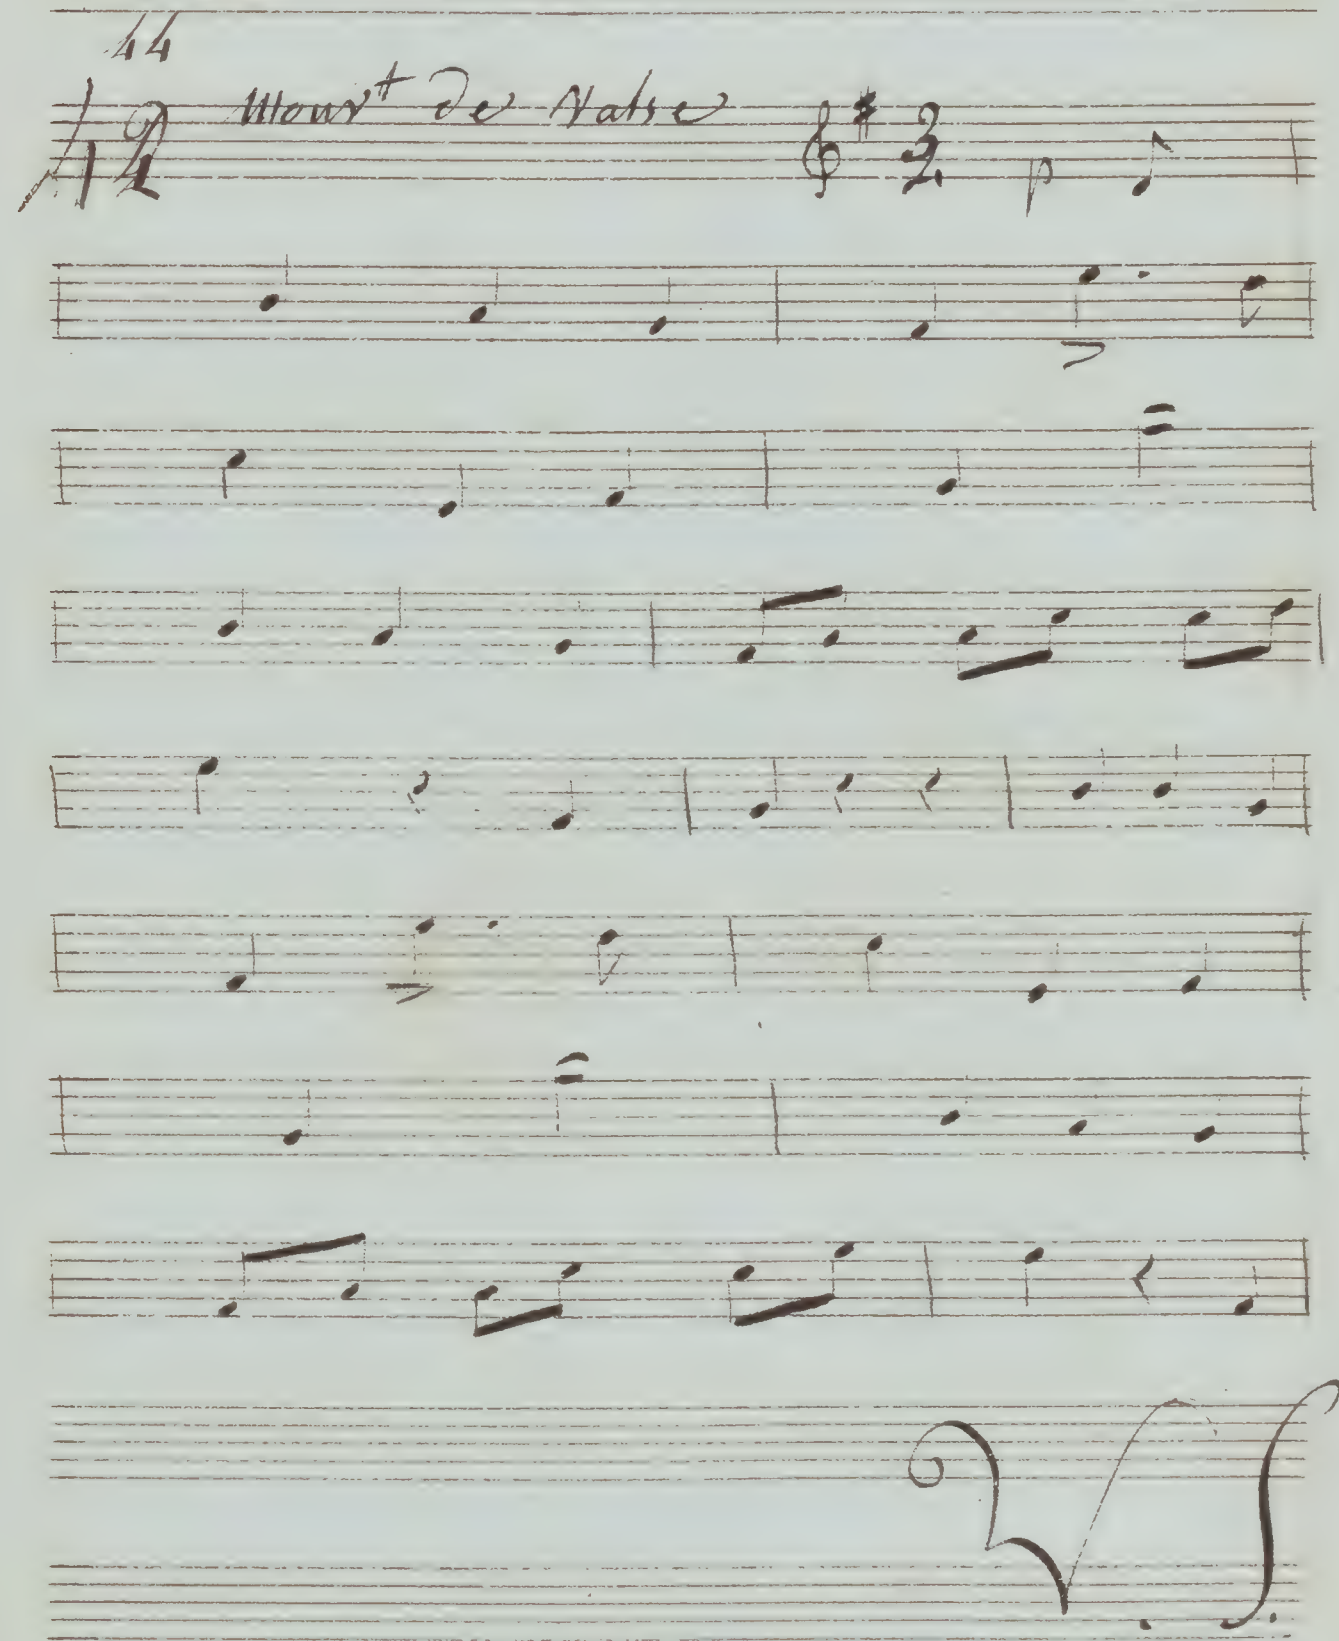 44
12 Mouvt de Valse 3/4 p
V. S.